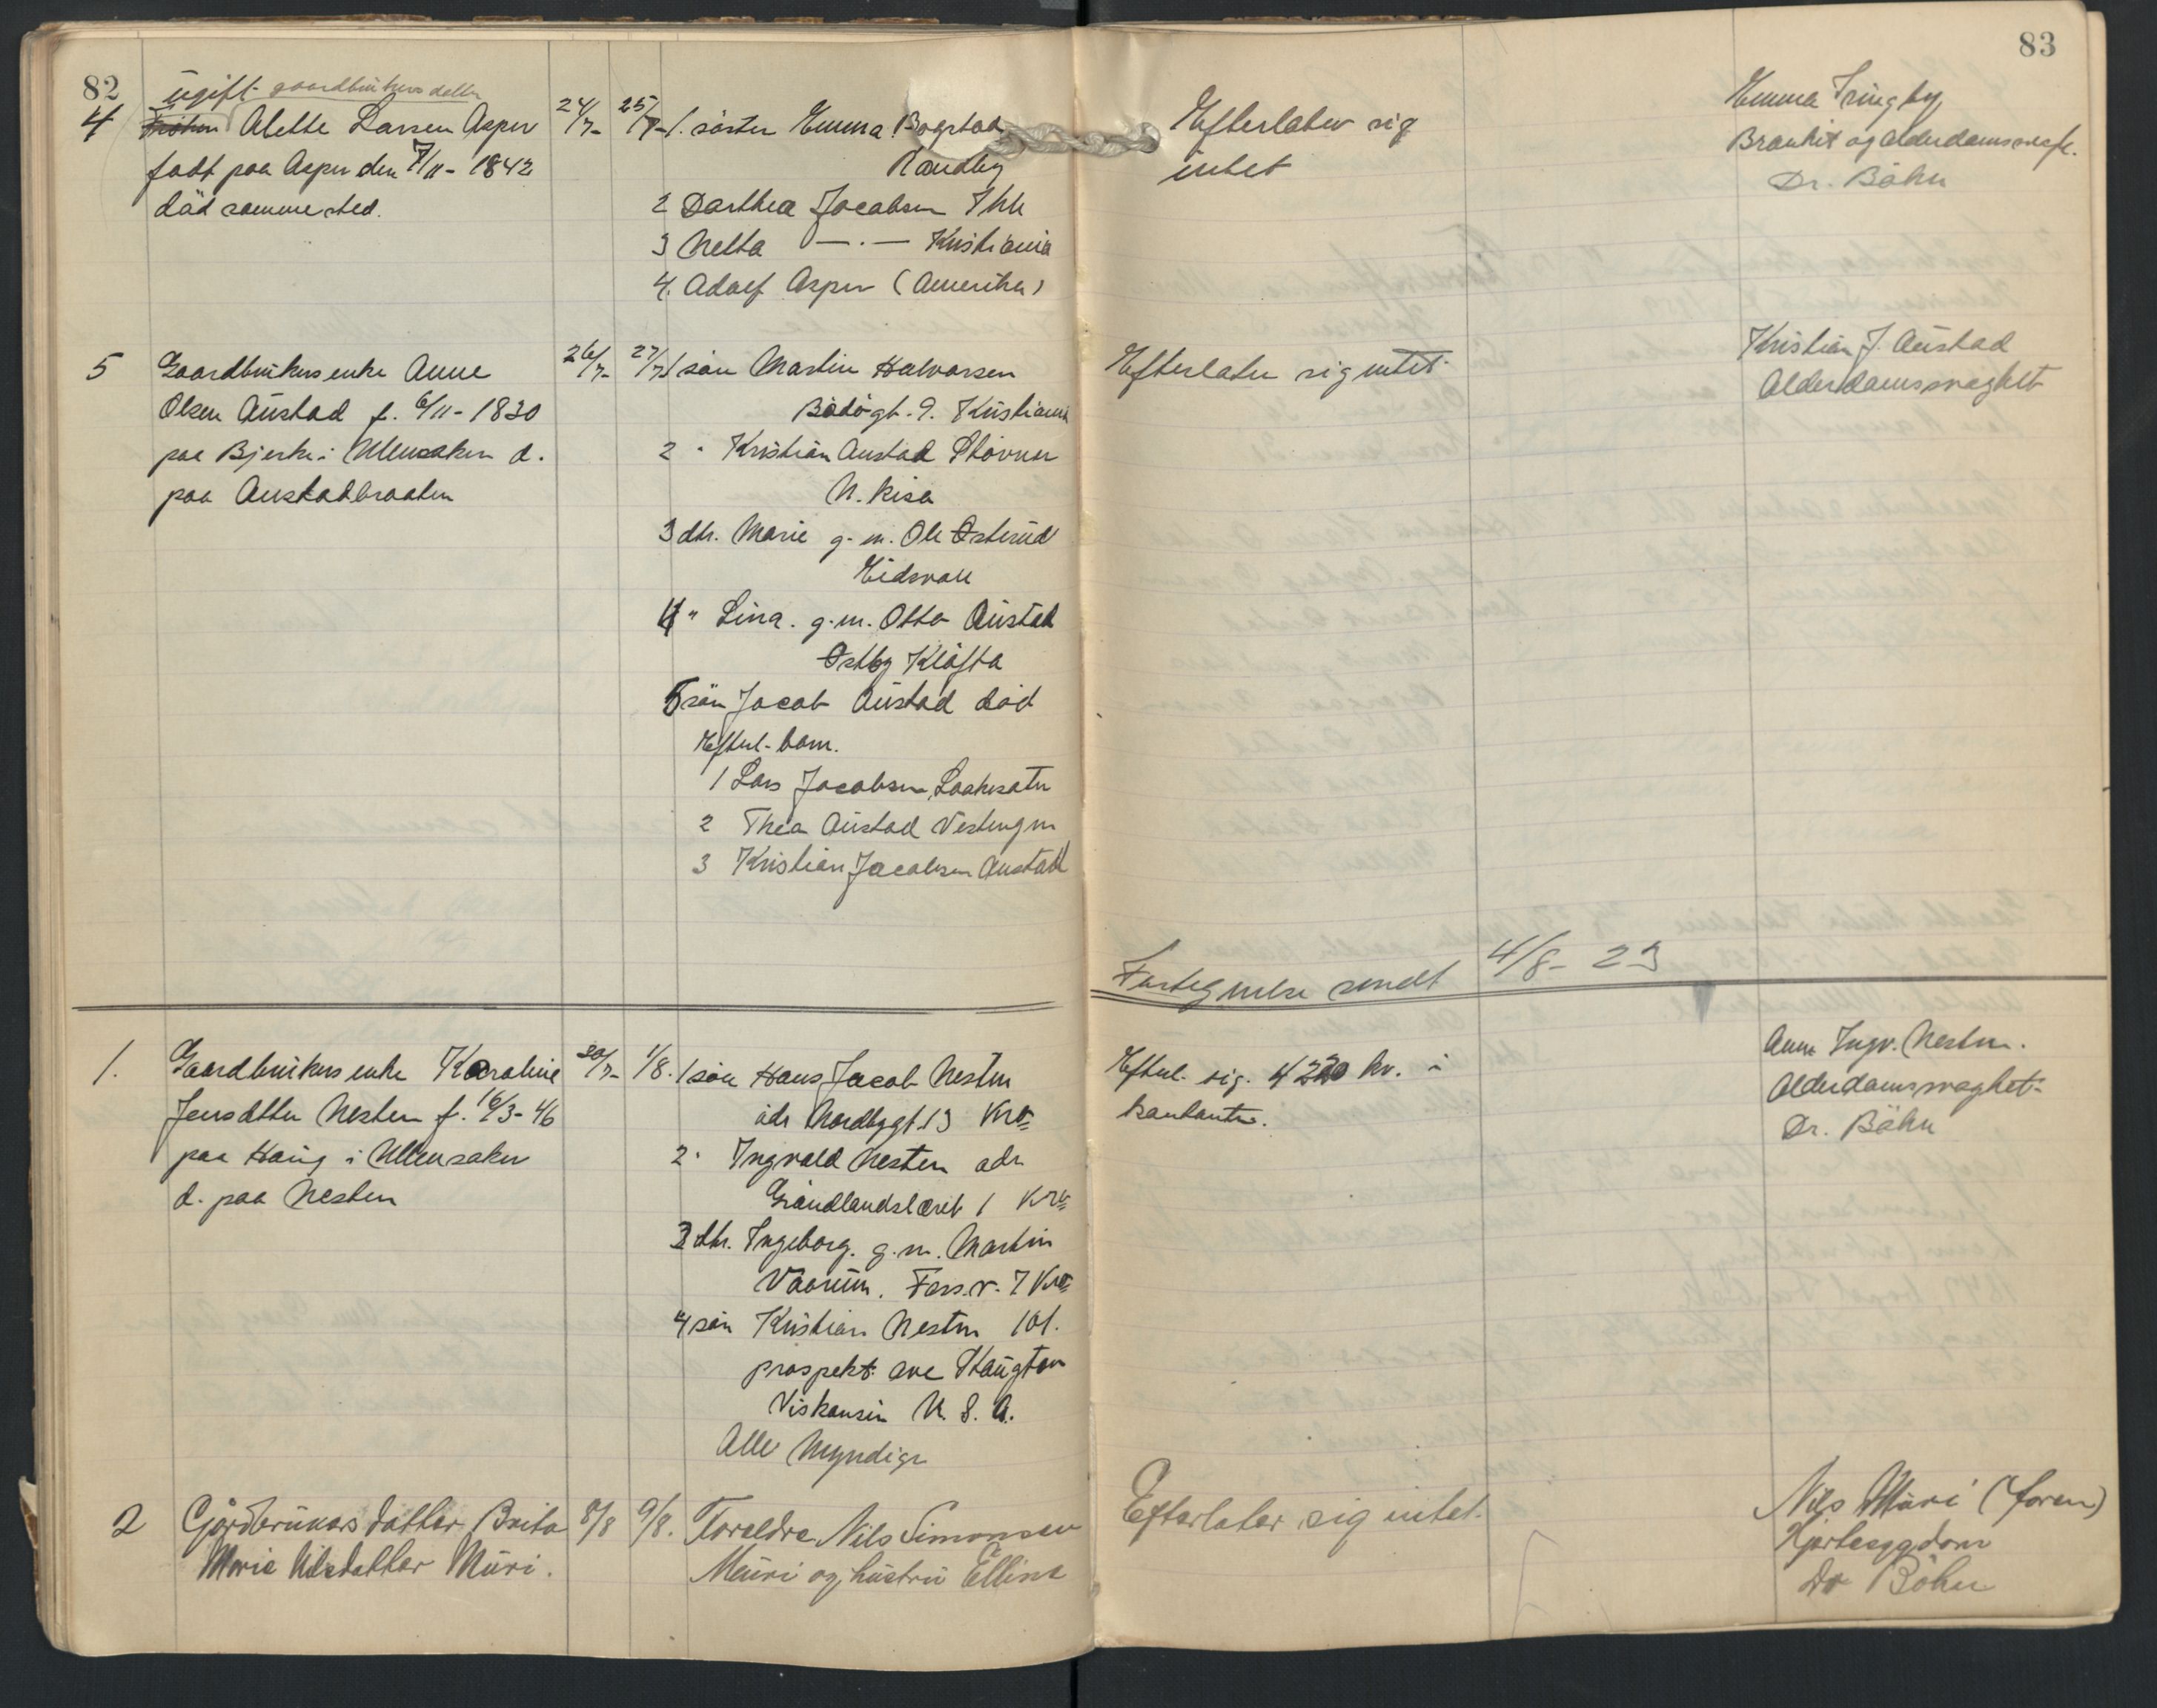 82
83
ugift gaardbrukers datter
4 Frøken Alette Larsen Asper 24/7- 25/7- 1. søster Emma Bogstad Efterlater sig Emma Tringby
født paa Asper den 7/11- 1842 Randby intet Brankit og alderdomssvagh.
död sammested. 2 Dorthea Jacobsen Dr. Böhn
3 Netta —·— Kristiania
4. Adolf Asper (Amerika)
5 Gaardbrukers enke Anne 26/7- 27/7 1 sön Martin Halvorsen Efterlater sig intet. Kristian J. Austad
Olsen Austad f. 6/11- 1830 Bodögt. 9. Kristiania Alderdomssvaghet
paa Bjerke i Ullensaker d. 2 " Kristian Austad Stovner
paa Austadbraaten N. Kisa
3 dtr. Marie g. m. Ole Østerud
Eidsvoll
4 " Lina. g. m. Otto Austad
Østby Kløfta
5 sön Jacob Austad död
Efterl. barn.
1 Lars Jacobsen,
2 Thea Austad Vestengen
3 Kristian Jacobsen Austad
Fortegnelse sendt 4/8- 23
1. Gaardbrukers enke Karoline 30/7- 1/8. 1 sön Hans Jacob Nesten Efterl. sig. 4220 kr. i Anne Ingv. Nesten.
Jensdtter Nesten f. 16/3- 46 adr Nordbygt. 13 Kra kontanter. Alderdomssvaghet.
paa Haug i Ullensaker 2 " Ingvald Nesten adr Dr. Böhn
d. paa Nesten Grönlandsleret 1 Kra
3 dtr. Ingeborg. g. m. Martin
Vaarum. Foss. v. 7 Kra
4 sön Kristian Nesten 101.
prospekt ave Staugton
Viskonsin U. S. A.
Alle Myndige
2 Gårdbrukers datter Brita 8/8 9/8. Foreldre Nils Simonsen Efterlater sig intet. Nils Muri (foren)
Marie Nilsdatter Muri. Muri og hustru Elline Hjertesygdom
Dr Böhn